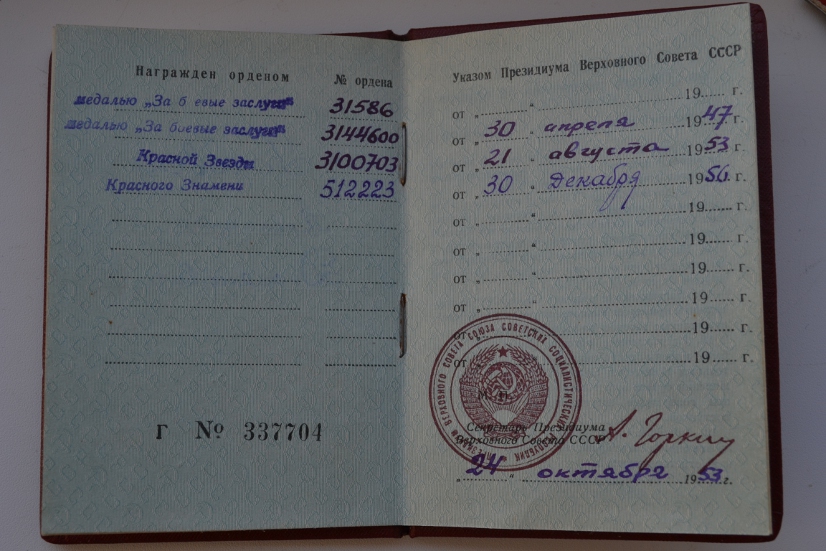 Награжден орденом № ордена
медалью „За б евые заслуги" 31586
медалью „За боевые заслуги" 3144600
Красной Звезды 3100703
Красного Знамени 512223
Г № 337704
Указом Президиума Верховного Совета СССР
от „ " 19 г.
от „ 30 " апреля 1947 г.
от „ 21 " августа 1953 г.
от „ 30 " Декабря 1956 г.
от „ " 19 г.
от „ " 19 г.
от „ " 19 г.
от „ " 19 г.
от 19 г.
от 19 г.
М. П.
Секретарь Президиума
Верховного Совета СССР А. Горкин
„ 24 " октября 1953 г.